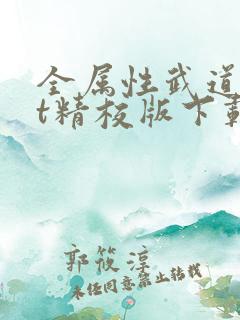 全属性武道
t精校版下载
郭筱淳
未经同意禁止转载